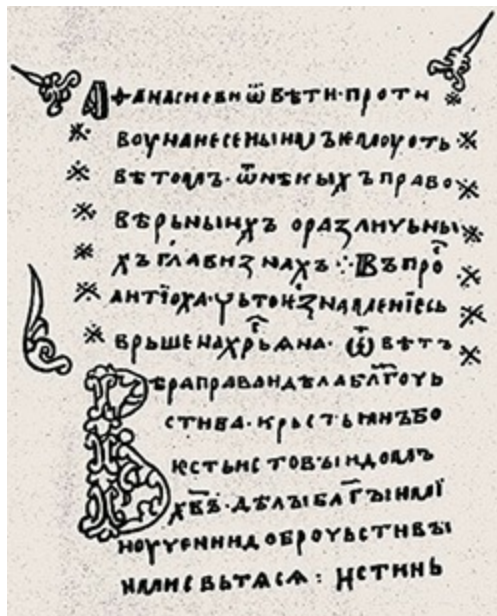 Аѳанасиеви ѿвѣти · проти
воу нанесенꙑимъ ѥмоу отъ
вѣтомъ · ѿ нѣкꙑхъ право
вѣрьнꙑихъ о различьнꙑ
хъ главизнахъ ⁘ Въпро҇
антїоха · чьто ѥ знамениѥ съ
врьшена хр҇ьꙗна · ѿвѣтъ
Вѣра права и дѣла бл҃гочь
стива · крьстьꙗнъ бо
ѥсть истовꙑи домъ
хв҃ъ · дѣлꙑ бл҃гꙑими ї
ноучении доброчьстивꙑ
ими съвьтаѧсѧ : истинь